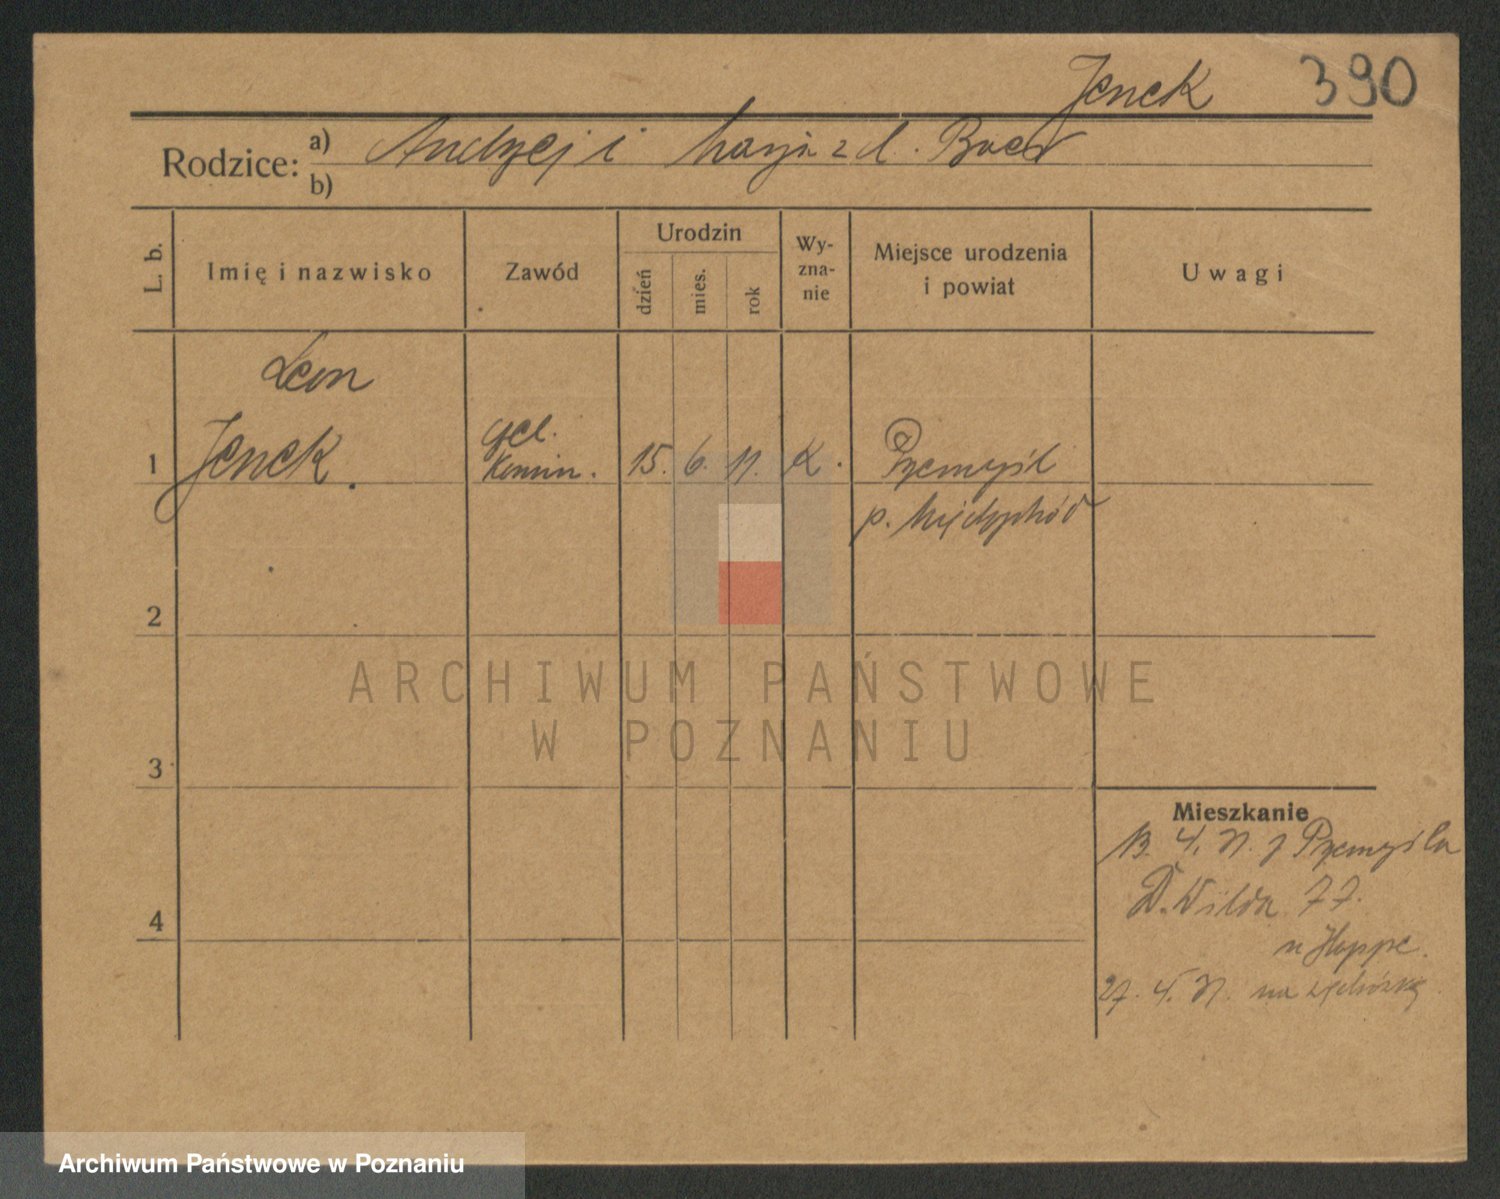 Jenek 390
Rodzice: a) Andrzej i Marja z d. Baer
b)
L. b.
Imię i nazwisko
Zawód
Urodzin
dzień
mies.
rok
Wy-
zna-
nie
Miejsce urodzenia
i powiat
Uwagi
Leon
1 Jenek. czel. Komin. 15. 6. 11. K. Przemyśl
p. Międzychód
2
3
4
ARCHIWUM PAŃSTWOWE
W POZNANIU
Mieszkanie
13. 4. z Przemyśla
D. Wilda 77.
u Hoppe.
27. 4. na
Archiwum Państwowe w Poznaniu